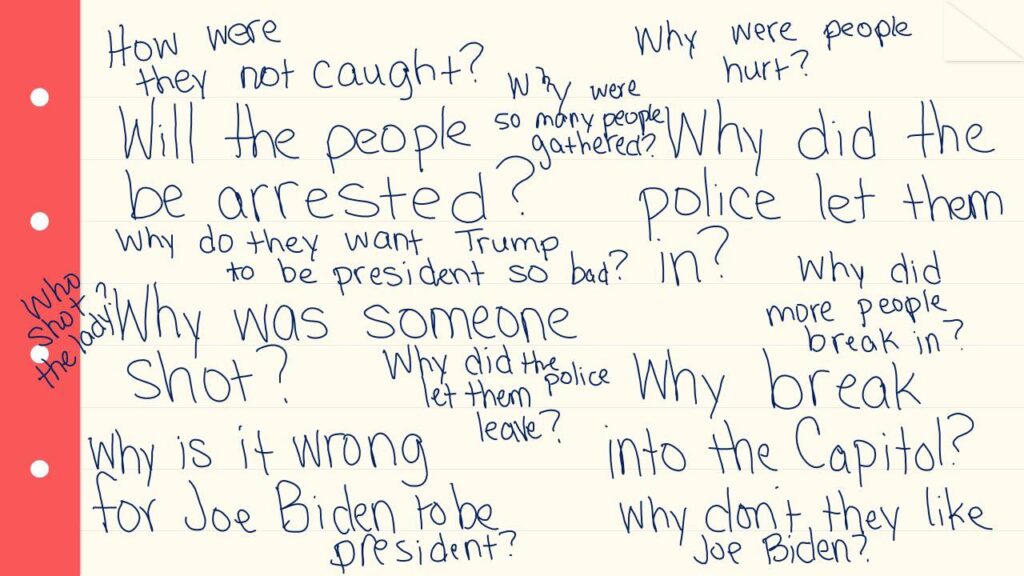 How were
they not caught?
Why were people
hurt?
Why were
so many people
gathered?
Will the people
be arrested?
Why did the
police let them
in?
Why do they want Trump
to be president so bad?
Why did
more people
break in?
Who
shot
the lady?
Why was someone
shot?
Why did the
police
let them
leave?
Why break
into the Capitol?
Why is it wrong
for Joe Biden to be
president?
Why don't they like
Joe Biden?